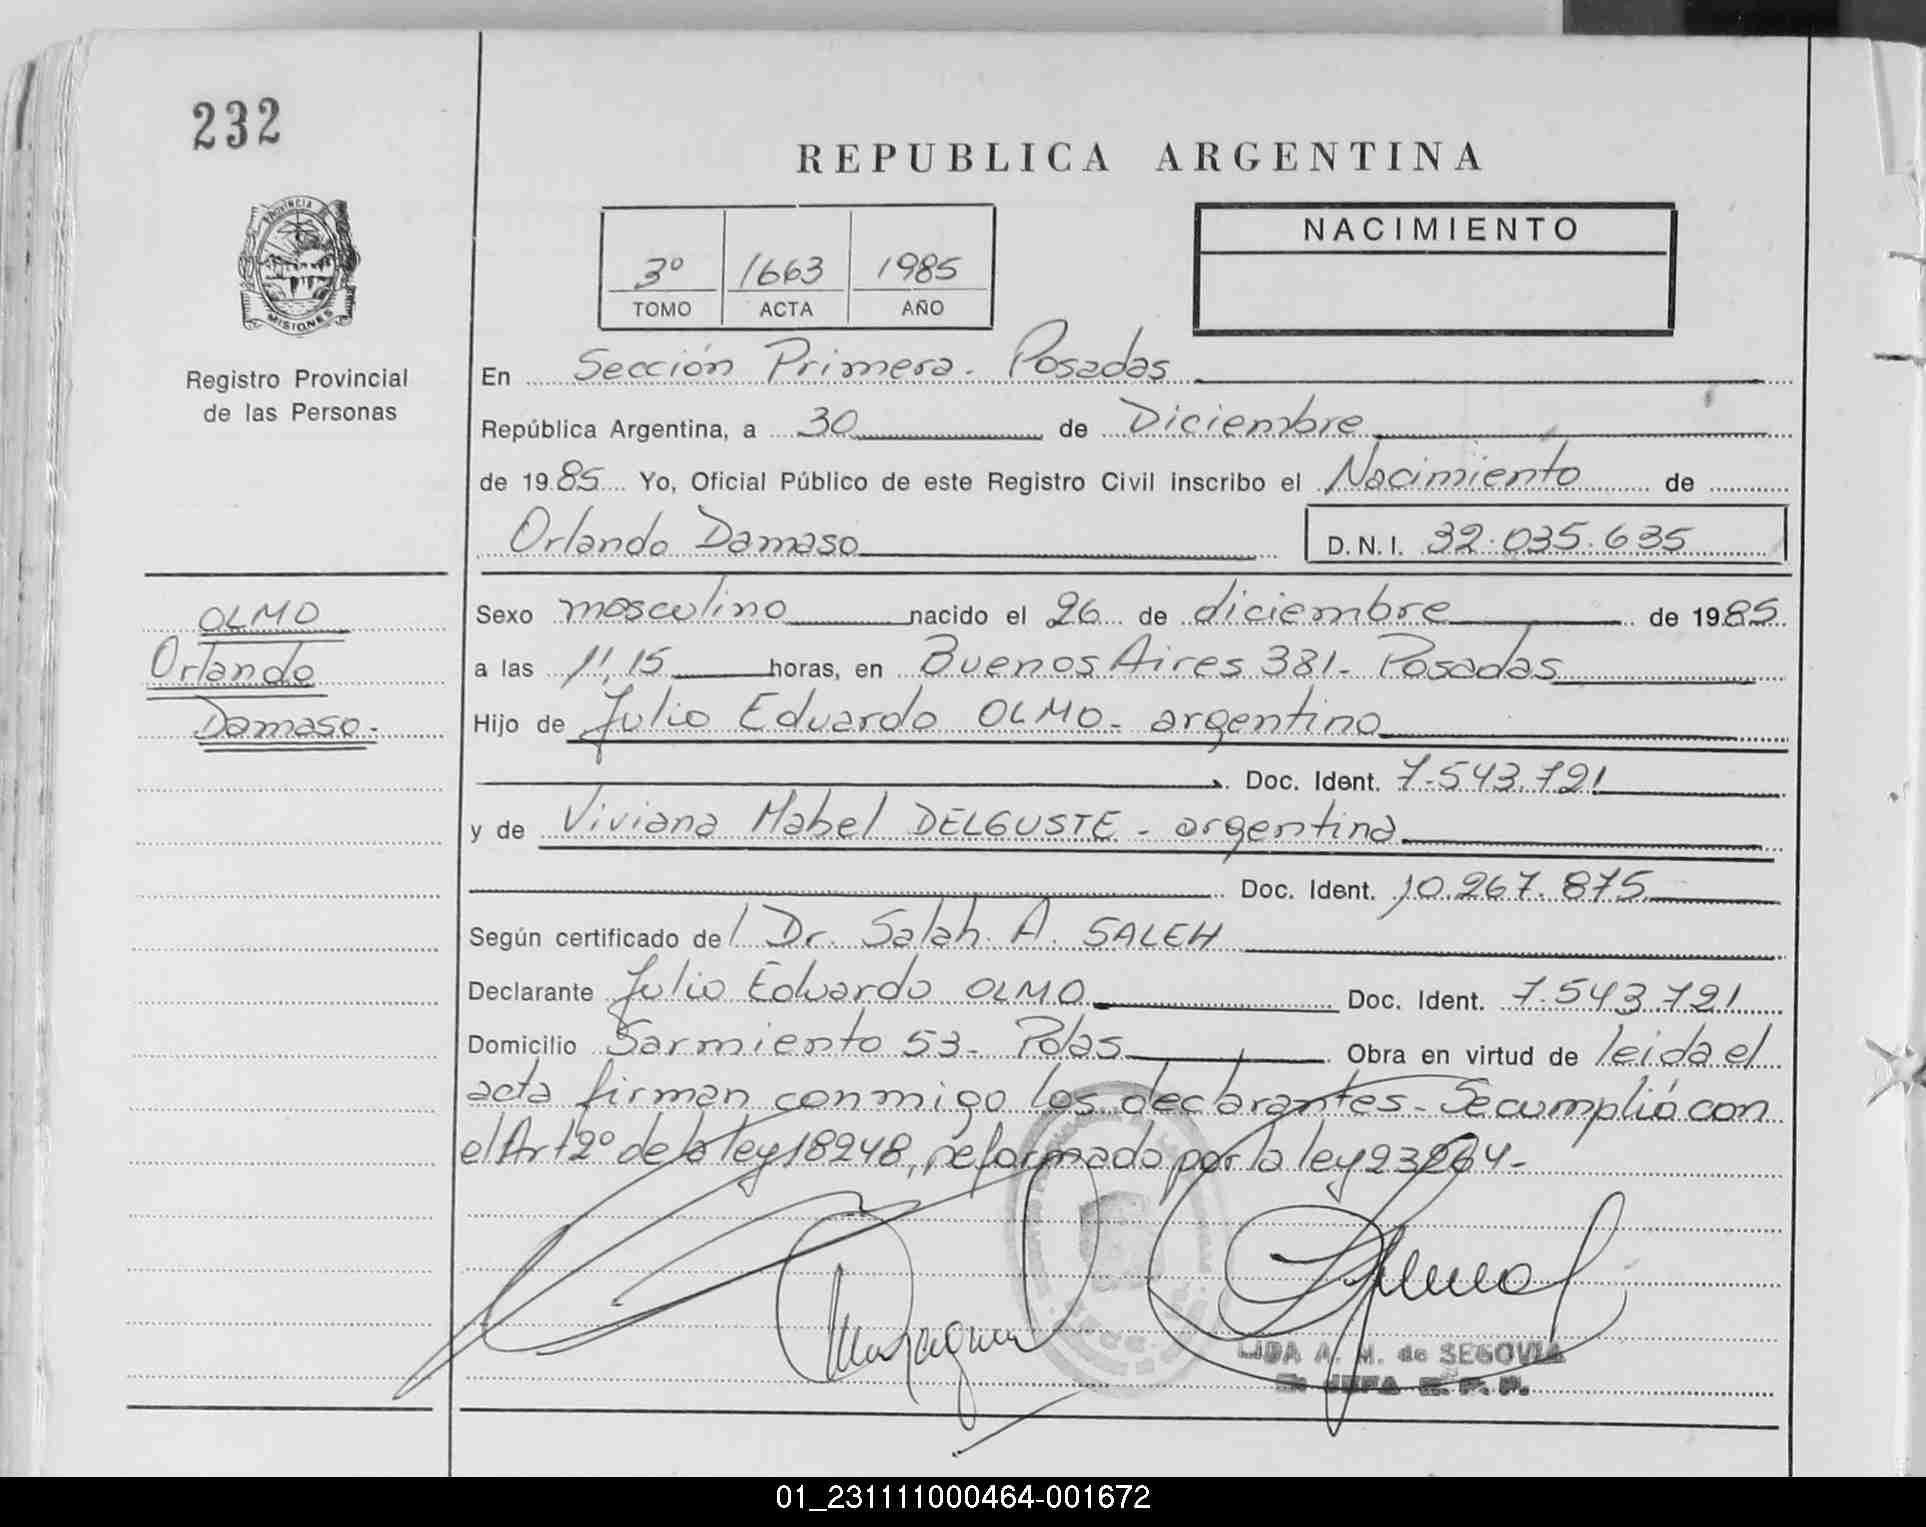 232
REPUBLICA ARGENTINA
PROVINCIA
MISIONES
Registro Provincial
de las Personas
3º 1663 1985
TOMO ACTA AÑO
NACIMIENTO
En Sección Primera. Posadas
República Argentina, a 30 de Diciembre
de 1985 Yo, Oficial Público de este Registro Civil inscribo el Nacimiento de
Orlando Damaso D.N.I. 32.035.635
OLMO
Orlando
Damaso.
Sexo masculino nacido el 26 de diciembre de 1985
a las 11,15 horas, en Buenos Aires 381- Posadas
Hijo de Julio Eduardo OLMO- argentino
Doc. Ident. 7.543.721
y de Viviana Mabel DELGUSTE - argentina
Doc. Ident. 10.267.875
Según certificado del Dr. Salah A. SALEH
Declarante Julio Eduardo OLMO Doc. Ident. 7.543.721
Domicilio Sarmiento 53- Pdas Obra en virtud de leida el
acta firman conmigo los declarantes- Se cumplió con
el Art 2º de la ley 18248, reformado por la ley 23264-
LIDA A. M. de SEGOVIA
JEFA R. P. P.
01_231111000464-001672